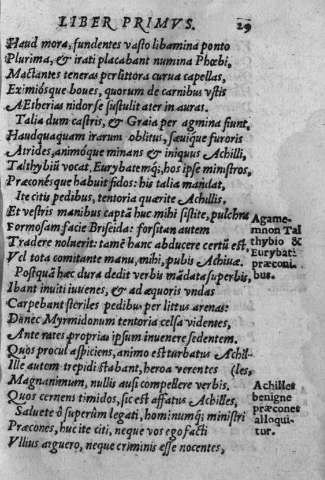 LIBER PRIMVS. 29
Haud mora, fundentes vasto libamina ponto
Plurima, & irati placabant numina Phœbi,
Mactantes teneras per littora curua capellas,
Eximiósque boues, quorum de carnibus vstis
AEtherias nidor se sustulit ater in auras.
Talia dum castris, & Graia per agmina fiunt,
Haudquaquam irarum oblitus, sæuique furoris
Atrides, animóque minans & iniquus Achilli,
Talthybiũ vocat, Eurybatemq; hos ipse ministros,
Præconésque habuit fidos: his talia mandat,
Ite citi pedibus, tentoria quærite Achillis,
Et vestris manibus captã huc mihi sistite, pulchra
Formosam facie Briseida: forsitan autem
Tradere noluerit: tamẽ hanc abducere certũ est,
Vel tota comitante manu, mihi, pubis Achiuæ.
Agame-
mnon Tal
thybio &
Eurybati
præconi.
bus.
Postquã hæc dura dedit verbis mãdata superbis,
Ibant inuiti iuuenes, & ad æquoris vndas
Carpebant steriles pedibus per littus arenas:
Donec Myrmidonum tentoria celsa videntes,
Ante rates proprias ipsum inuenere sedentem.
Quos procul aspiciens, animo est turbatus Achil-
Ille autem trepidi stabant, heroa verentes (les,
Magnanimum, nullis ausi compellere verbis,
Quos cernens timidos, sic est affatus Achilles,
Saluete ô superûm legati, hominumq; ministri
Præcones, huc ite citi, neque vos ego facti
Vllius arguero, neque criminis esse nocentes,
Achilles
benigne
præcones
alloqui-
tur.